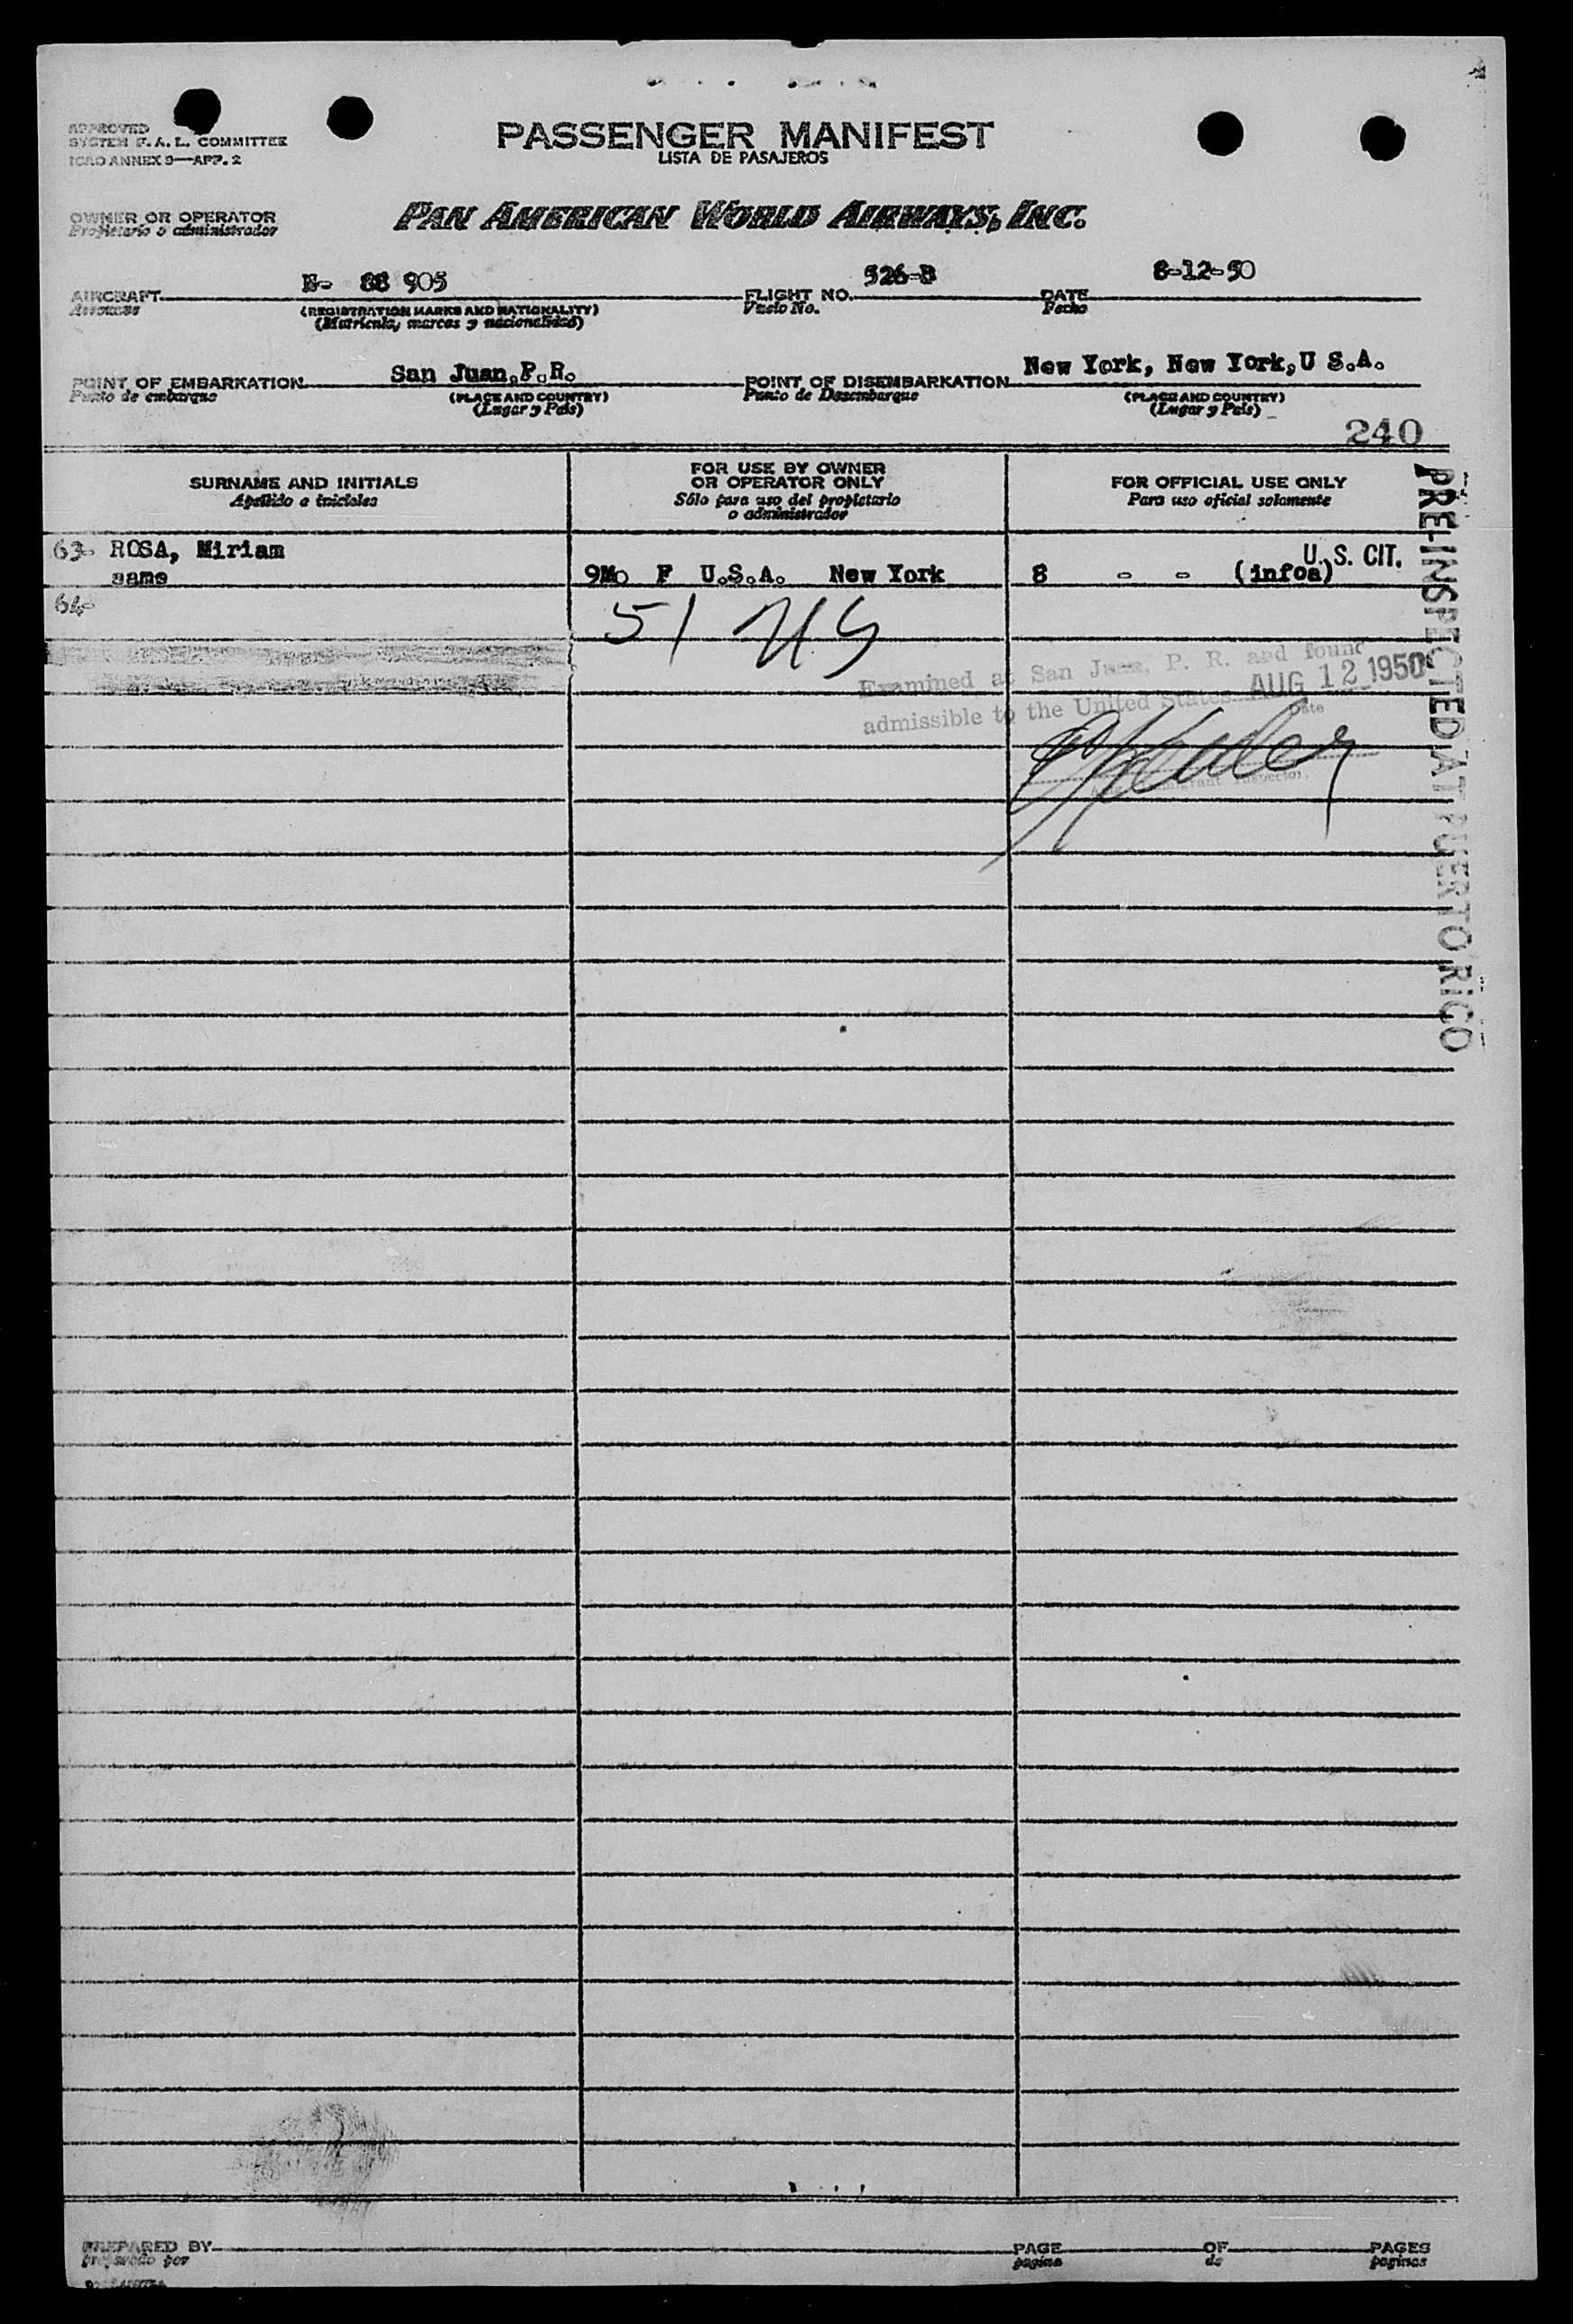 APPROVED
SYSTEM F.A.L. COMMITTEE
ICAO ANNEX 9—APP. 2
PASSENGER MANIFEST
LISTA DE PASAJEROS
OWNER OR OPERATOR
Propietario o administrador
PAN AMERICAN WORLD AIRWAYS, INC.
AIRCRAFT N- 88 905
Aeronave
(REGISTRATION MARKS AND NATIONALITY)
(Matrícula, marcas y nacionalidad)
FLIGHT NO. 526-B
Vuelo No.
DATE 8-12-50
Fecha
POINT OF EMBARKATION San Juan, P.R.
Punto de embarque
(PLACE AND COUNTRY)
(Lugar y País)
POINT OF DISEMBARKATION New York, New York, U S.A.
Punto de Desembarque
(PLACE AND COUNTRY)
(Lugar y País)
240
SURNAME AND INITIALS
Apellido e iniciales
FOR USE BY OWNER
OR OPERATOR ONLY
Sólo para uso del propietario
o administrador
FOR OFFICIAL USE ONLY
Para uso oficial solamente
63- ROSA, Miriam
same 9Mo F U.S.A. New York 8 - - (infoa) U.S. CIT.
64-
51 US
Examined at San Juan, P. R. and found
admissible to the United States AUG 12 1950
Date
Immigrant Inspector.
PRE-INSPECTED AT PUERTO RICO
PREPARED BY
preparado por
PAGE OF PAGES
página de páginas